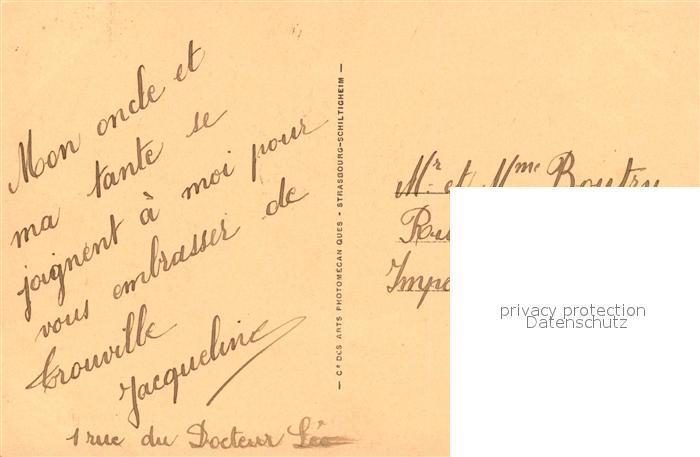 Mon oncle et
ma tante se
joignent à moi pour
vous embrasser de
Trouville
Jacqueline
1 rue du Docteur
— Cie DES ARTS PHOTOMÉCANIQUES - STRASBOURG-SCHILTIGHEIM —
Mr et Mme Boutry
privacy protection
Datenschutz